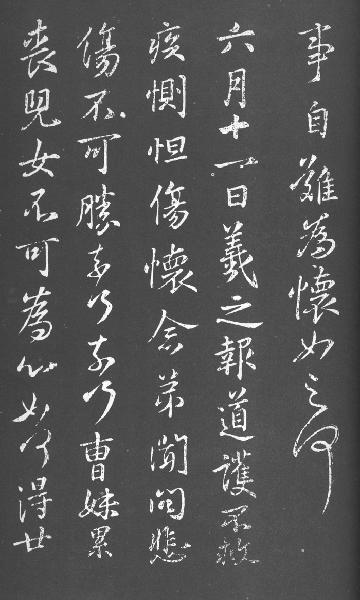 事自難為懷如之何
六月十一日羲之報道護不救
疾惻怛傷懷念弟聞問悲
傷不可勝奈何奈何曹妹累
喪兒女不可為心如何得廿